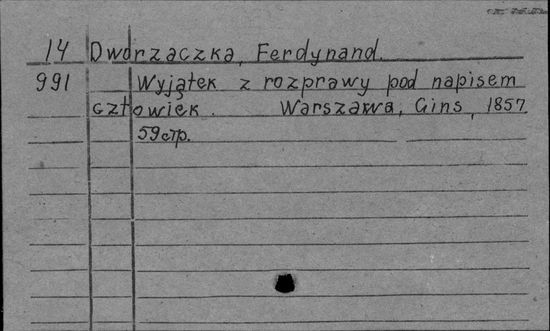 14 Dworzaczka, Ferdynand.
991 Wyjątek z rozprawy pod napisem
człowiek. Warszawa, Gins, 1857.
59 стр.